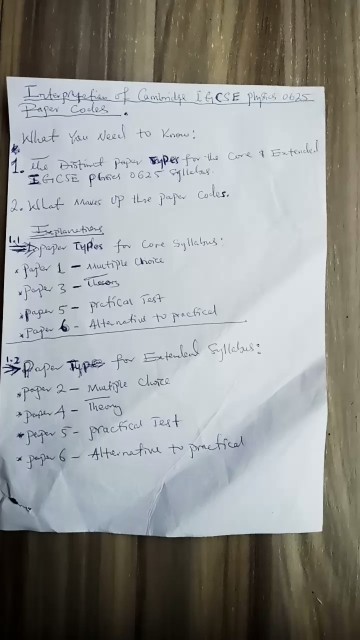 Interpretation of Cambridge IGCSE physics 0625
Paper Codes.
What You Need to Know:
1. The Distinct paper Types for the Core & Extended
IGCSE physics 0625 Syllabus.
2. What Makes Up these paper Codes.
Explanations
1.1 paper Types for Core Syllabus:
* paper 1 – Multiple Choice
* paper 3 – Theory
* paper 5 – pratical Test
* paper 6 – Alternative to practical
1.2 Paper Types for Extended Syllabus:
* paper 2 – Multiple Choice
* paper 4 – Theory
* paper 5 – practical Test
* paper 6 – Alternative to practical